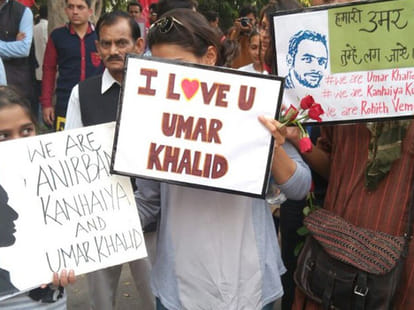 WE ARE
ANIRBAN
KANHAIYA
AND
UMAR KHALID
I LOVE U
UMAR
KHALID
हमारी उमर
तुम्हें लग जाये
#We are Umar Khalid
#We are Kanhaiya Ku
We are Rohith Vem